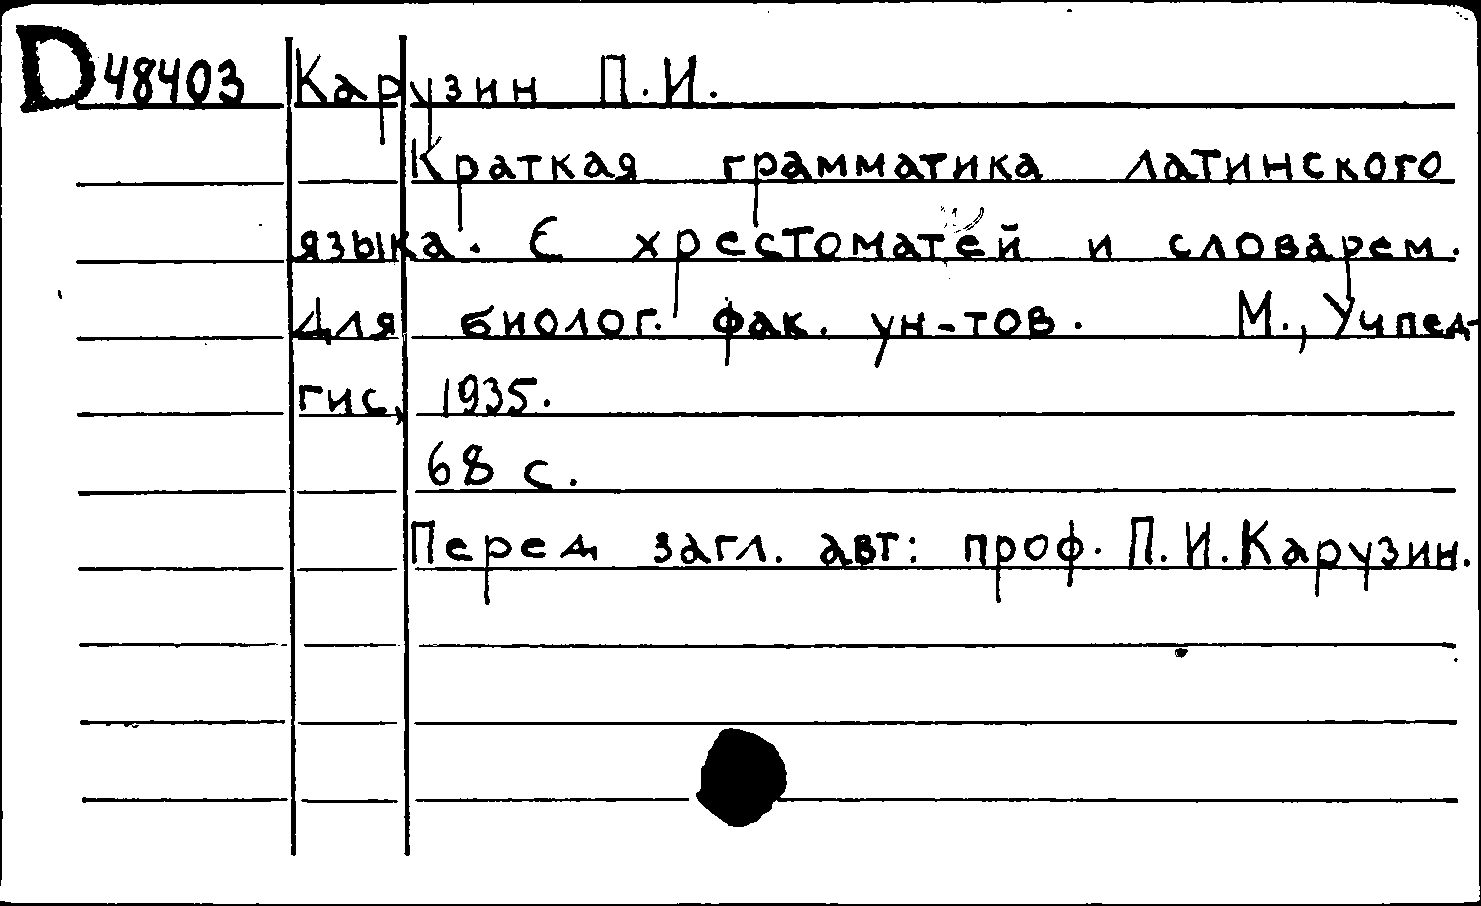 D48403 Карузин П.И.
Краткая грамматика латинского
языка. С хрестоматей и словарем.
Для биолог. фак. ун-тов. М., Учпед-
гис, 1935.
68 с.
Перед загл. авт: проф. П.И.Карузин.